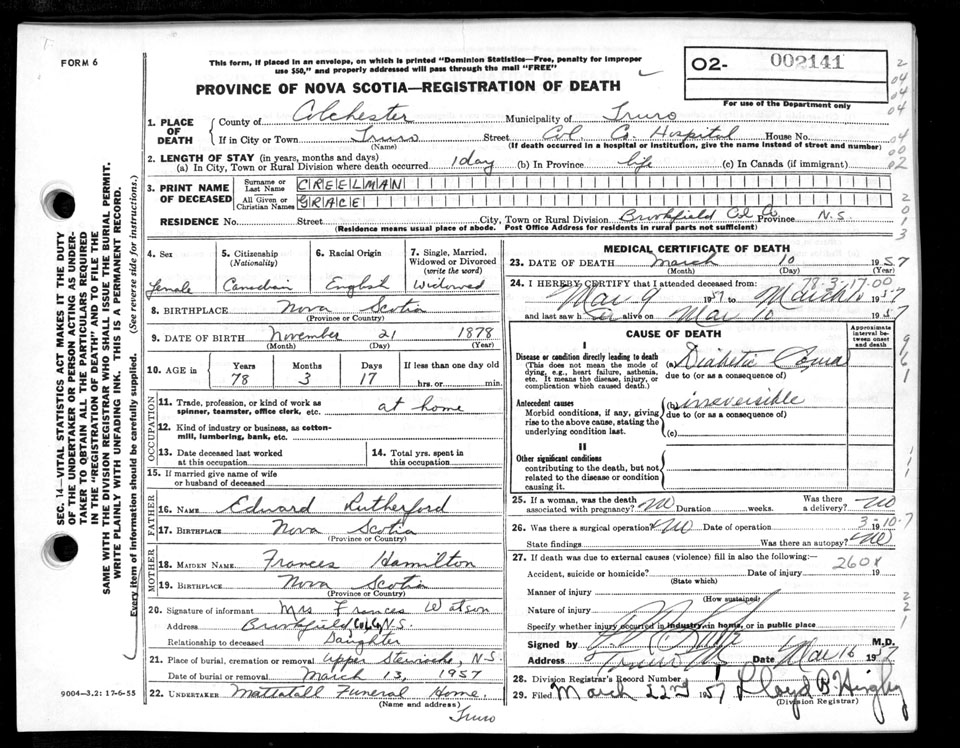 FORM 6
This form, if placed in an envelope, on which is printed "Dominion Statistics—Free, penalty for improper
use $50," and properly addressed will pass through the mail "FREE"
O2- 002141
For use of the Department only
PROVINCE OF NOVA SCOTIA—REGISTRATION OF DEATH
1. PLACE OF DEATH
County of Colchester Municipality of Truro
If in City or Town Truro Street Col. Co. Hospital House No.
(Name) (If death occurred in a hospital or institution, give the name instead of street and number)
2. LENGTH OF STAY (in years, months and days)
(a) In City, Town or Rural Division where death occurred 1 day (b) In Province life (c) In Canada (if immigrant)
3. PRINT NAME OF DECEASED
Surname or Last Name CREELMAN
All Given or Christian Names GRACE
RESIDENCE No. Street City, Town or Rural Division Brookfield Col. Co. Province N.S.
(Residence means usual place of abode. Post Office Address for residents in rural parts not sufficient)
4. Sex female
5. Citizenship (Nationality) Canadian
6. Racial Origin English
7. Single, Married, Widowed or Divorced (write the word) Widowed
8. BIRTHPLACE Nova Scotia
(Province or Country)
9. DATE OF BIRTH November 21 1878
(Month) (Day) (Year)
10. AGE in Years 78 Months 3 Days 17 If less than one day old hrs. or min.
OCCUPATION
11. Trade, profession, or kind of work as spinner, teamster, office clerk, etc. at home
12. Kind of industry or business, as cotton-mill, lumbering, bank, etc.
13. Date deceased last worked at this occupation
14. Total yrs. spent in this occupation
15. If married give name of wife or husband of deceased
FATHER
16. NAME Edward Rutherford
17. BIRTHPLACE Nova Scotia
(Province or Country)
MOTHER
18. MAIDEN NAME Frances Hamilton
19. BIRTHPLACE Nova Scotia
(Province or Country)
20. Signature of informant Mrs Frances Watson
Address Brookfield Col. Co. N.S.
Relationship to deceased Daughter
21. Place of burial, cremation or removal Upper Stewiacke, N.S.
Date of burial, cremation or removal March 13, 1957
22. UNDERTAKER Mattatall Funeral Home.
(Name and address)
Truro
9004-3.2: 17-6-55
MEDICAL CERTIFICATE OF DEATH
23. DATE OF DEATH March 10 1957
(Month) (Day) (Year)
24. I HEREBY CERTIFY that I attended deceased from: 78-3-17-00
Mar 9 1957 to March 1957
and last saw h alive on Mar 10 1957
CAUSE OF DEATH
Approximate interval between onset and death
I
Disease or condition directly leading to death
(This does not mean the mode of dying, e.g., heart failure, asthenia, etc. It means the disease, injury, or complication which caused death.)
(a) Diabetic Coma
due to (or as a consequence of)
Antecedent causes
Morbid conditions, if any, giving rise to the above cause, stating the underlying condition last.
(b) irreversible
due to (or as a consequence of)
(c)
II
Other significant conditions
contributing to the death, but not related to the disease or condition causing it.
25. If a woman, was the death associated with pregnancy? No Duration weeks. Was there a delivery? No
3-10-7
26. Was there a surgical operation? No Date of operation 19
State findings Was there an autopsy? No
27. If death was due to external causes (violence) fill in also the following:—
260X
Accident, suicide or homicide? Date of injury 19
(State which)
Manner of injury
(How sustained)
Nature of injury
Specify whether injury occurred in industry, in home, or in public place
Signed by M.D.
Address Truro N.S. Date Mar 16 1957
28. Division Registrar's Record Number
29. Filed March 22nd 1957 Lloyd B.
(Division Registrar)
SEC. 14—VITAL STATISTICS ACT MAKES IT THE DUTY
OF THE UNDERTAKER OR PERSON ACTING AS UNDER-
TAKER TO OBTAIN ALL THE PARTICULARS REQUIRED
IN THE "REGISTRATION OF DEATH" AND TO FILE THE
SAME WITH THE DIVISION REGISTRAR WHO SHALL ISSUE THE BURIAL PERMIT.
WRITE PLAINLY WITH UNFADING INK. THIS IS A PERMANENT RECORD.
Every item of information should be carefully supplied. (See reverse side for instructions.)